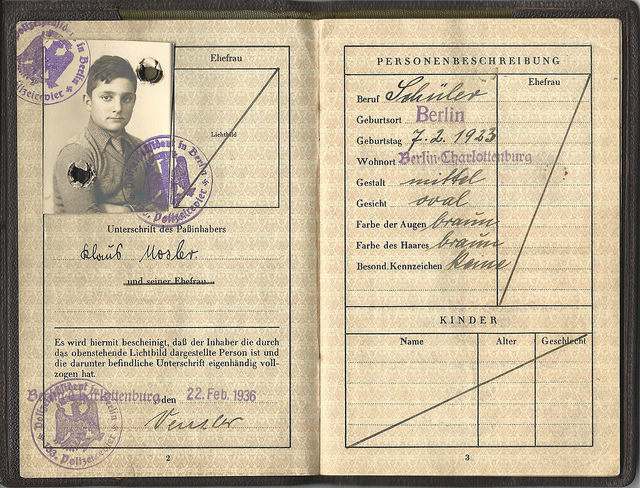 Ehefrau
Lichtbild
Unterschrift des Paßinhabers
Klaus Mosler
und seiner Ehefrau
Es wird hiermit bescheinigt, daß der Inhaber die durch
das obenstehende Lichtbild dargestellte Person ist und
die darunter befindliche Unterschrift eigenhändig voll-
zogen hat.
Berlin-Charlottenburg, den 22. Feb. 1936
2
PERSONENBESCHREIBUNG
Ehefrau
Beruf Schüler
Geburtsort Berlin
Geburtstag 7.2.1923
Wohnort Berlin-Charlottenburg
Gestalt mittel
Gesicht oval
Farbe der Augen braun
Farbe des Haares braun
Besond. Kennzeichen Keine
KINDER
Name Alter Geschlecht
3